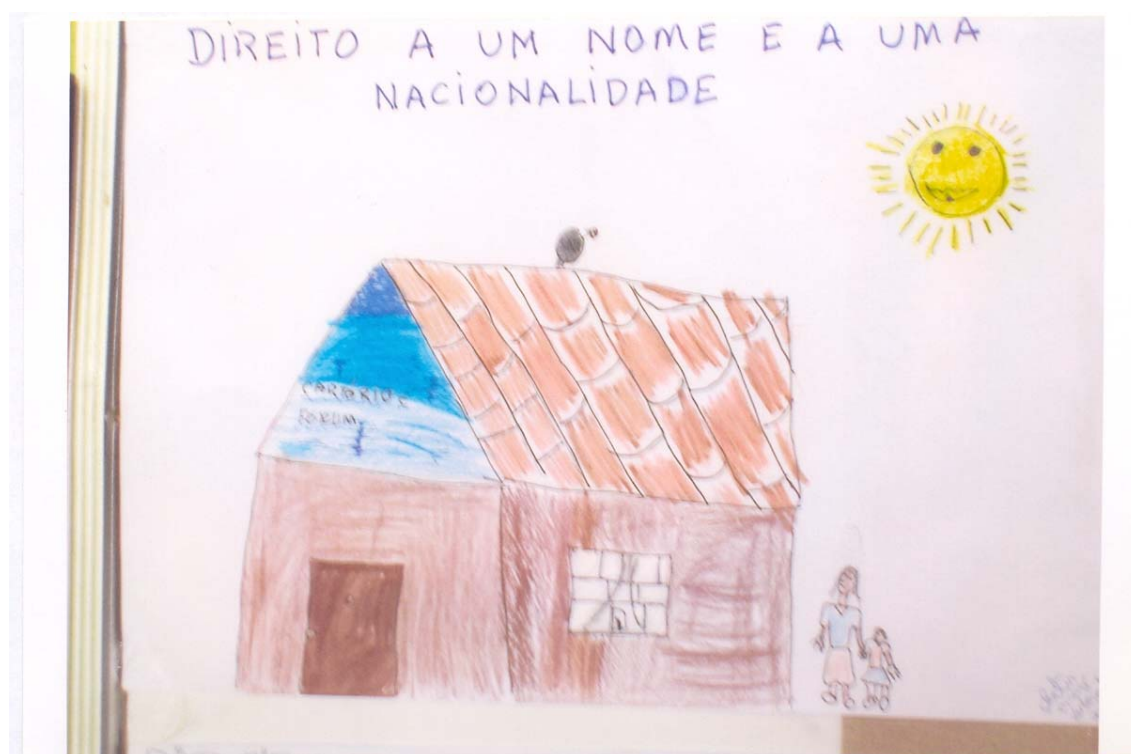 DIREITO A UM NOME E A UMA
NACIONALIDADE
FORUM